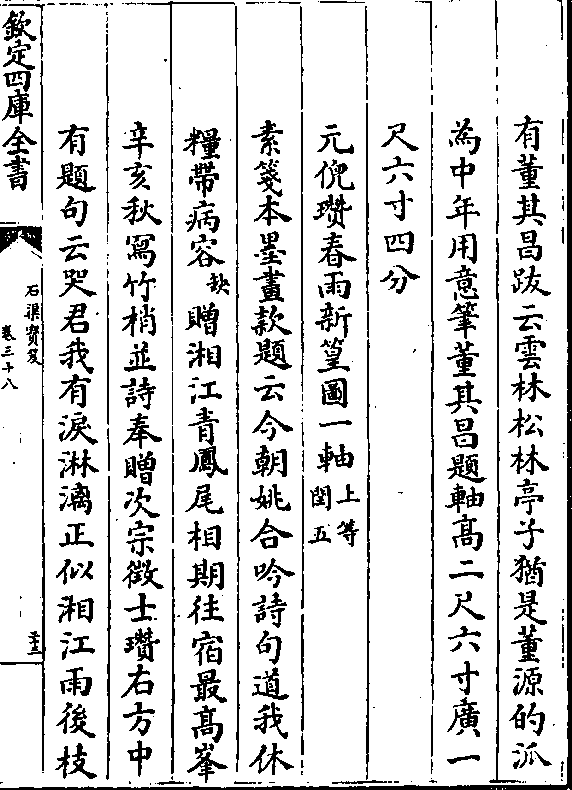 有董其昌跋云雲林松林亭子猶是董源的派
為中年用意筆董其昌題軸髙二尺六寸廣一
尺六寸四分
元倪瓚春雨新篁圖一軸上等閏五
素箋本墨畫款題云今朝姚合吟詩句道我休
糧帶病容缺贈湘江青鳳尾相期往宿最髙峯
辛亥秋寫竹梢並詩奉贈次宗徴士瓚右方中
有題句云哭君我有淚淋漓正似湘江雨後枝
欽定四庫全書
石渠寶笈
卷三十八